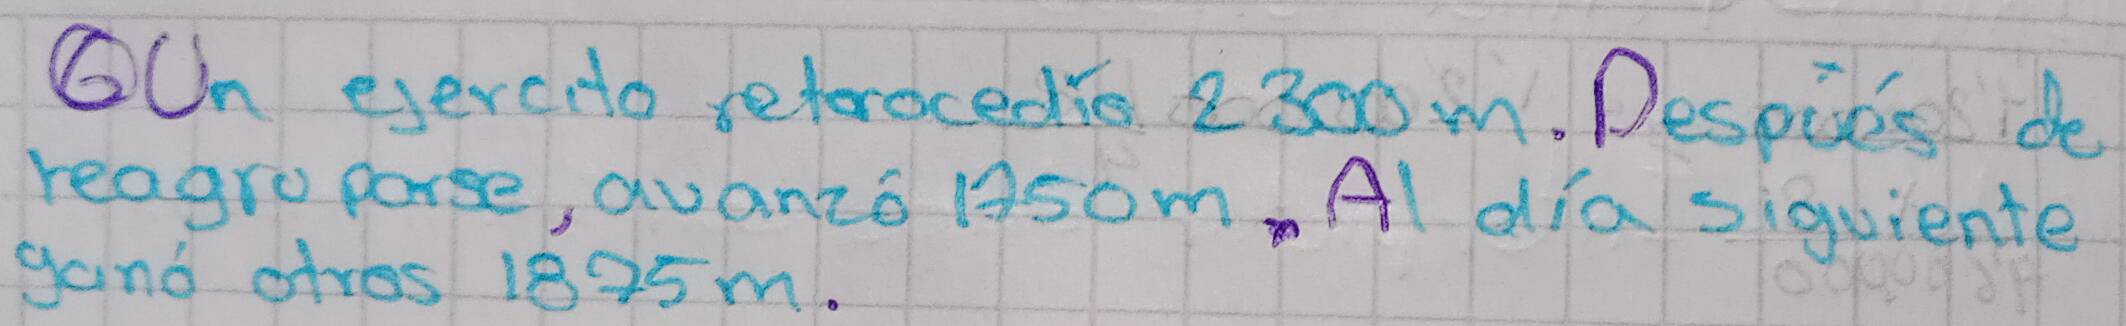 ⑥Un ejercito reterocedía 2300m. Después de
reagruparse, avanzó 1750m. Al día siguiente
ganó otros 1875m.